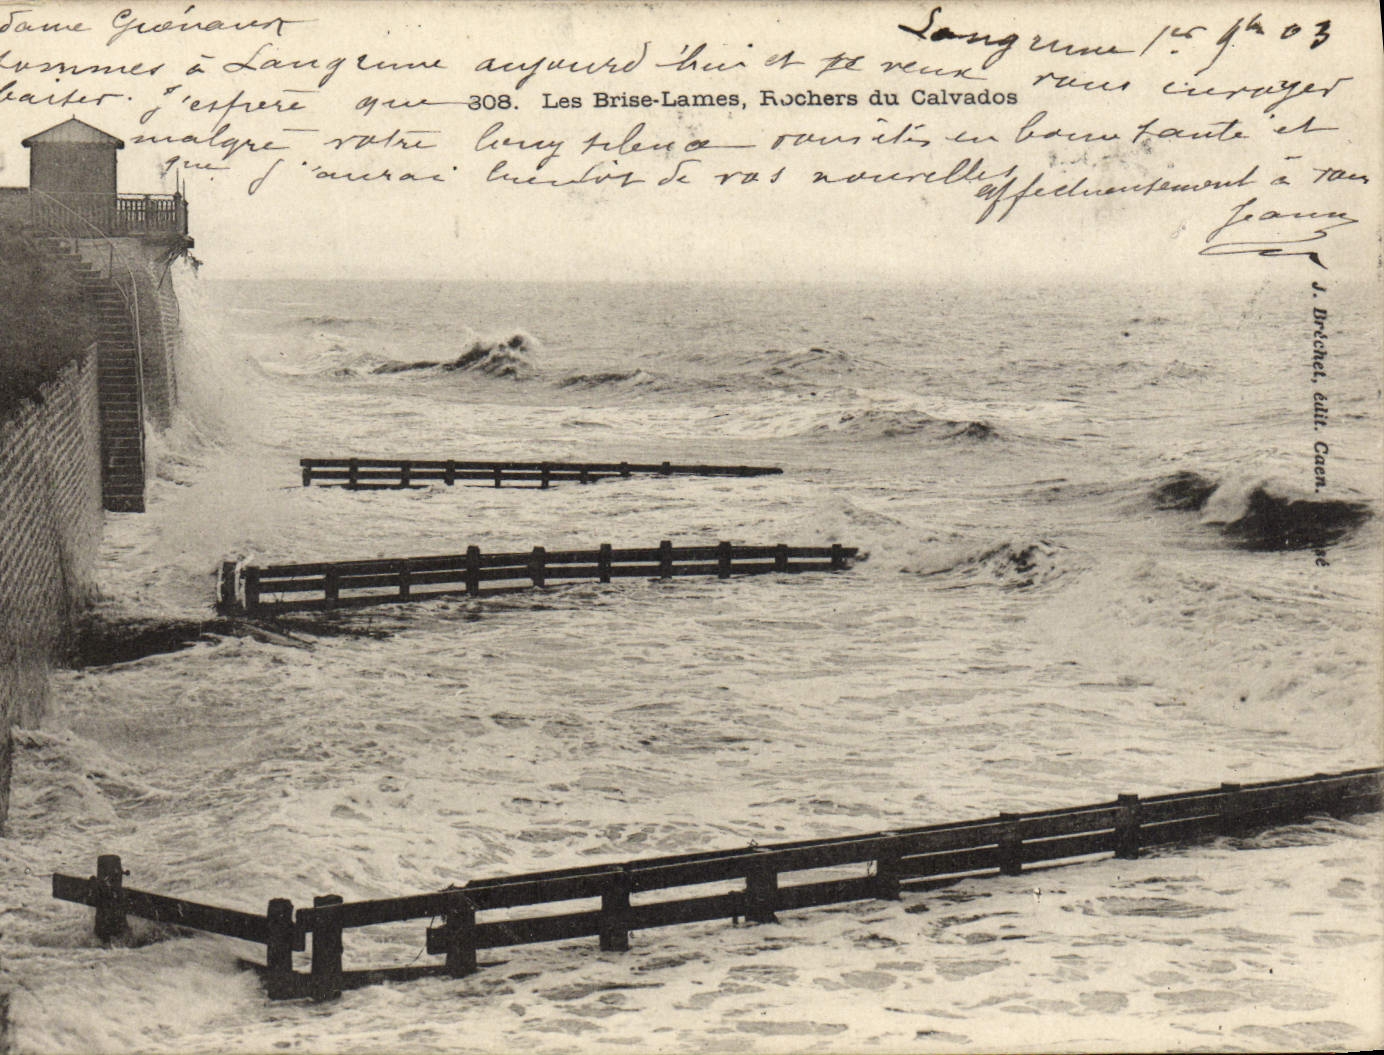 Langrune 1er 9bre 03
dame Grénaux
sommes à Langrune aujourd'hui et je veux vous envoyer
baiser. J'espère que
308. Les Brise-Lames, Rochers du Calvados
malgré votre long silence vous êtes en bonne santé et
que j'aurai bientôt de vos nouvelles
affectueusement à vous
Jeanne
J. Bréchet, édit. Caen.
sé